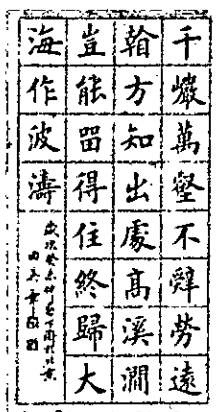 千巖萬壑不辭勞遠
看方知出處高溪澗
豈能留得住終歸大
海作波濤